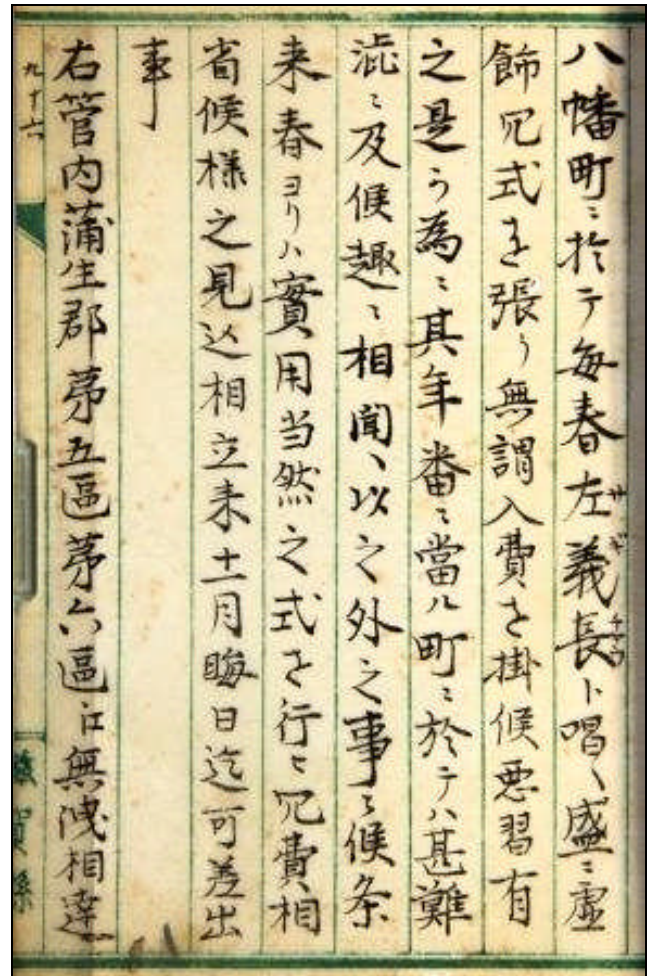 八幡町ニ於テ毎春左義長ト唱ヘ盛ニ虚
サギチヤウ
飾冗式を張り無謂入費を掛候悪習有
之是ら為ニ其年番ニ當ル町ニ於テハ甚難
澁ニ及候趣ニ相聞ヘ以之外之事ニ候条
来春ヨリハ實用当然之式を行ヒ冗費相
省候様之見込相立来十一月晦日迄可差出
事
右管内蒲生郡第五區第六區江無洩相達
九十六
滋賀縣